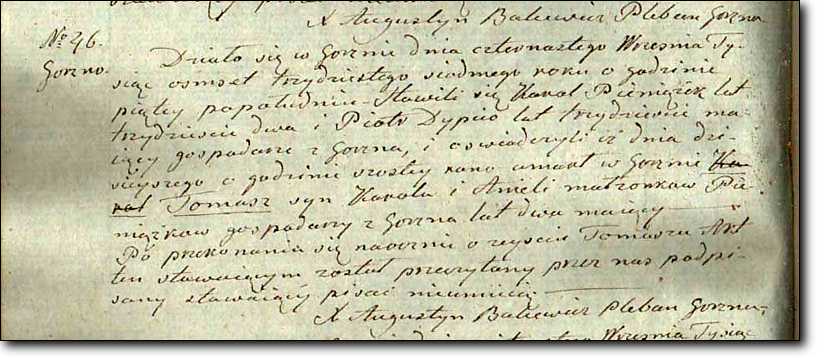 X Augustyn Balcewicz Pleban Gorzna
No 46.
Gorzno.
Działo się w Gorznie dnia czternastego Wrzesnia Ty-
siąc osmset trzydziestego siodmego roku o godzinie
piątey popołudniu. Stawili się Karol Pieniązek lat
trzydziescie dwa i Piotr Dypcio lat trzydziescie ma-
iący gospodarze z Gorzna, i oswiadczyli iż dnia dzi-
sieyszego o godzinie szostey rano umarł w Gorznie Ka-
rol Tomasz syn Karola i Anieli małzonkow Pie-
niązkow gospodarzy z Gorzna lat dwa maiący
Po przekonaniu się naocznie o zeysciu Tomasza Akt
ten stawaiącym został przeczytany przez nas podpi-
sany stawaiący pisać nieumieią
X Augustyn Balcewicz Pleban Gorzna
Wrzesnia Tysiąc